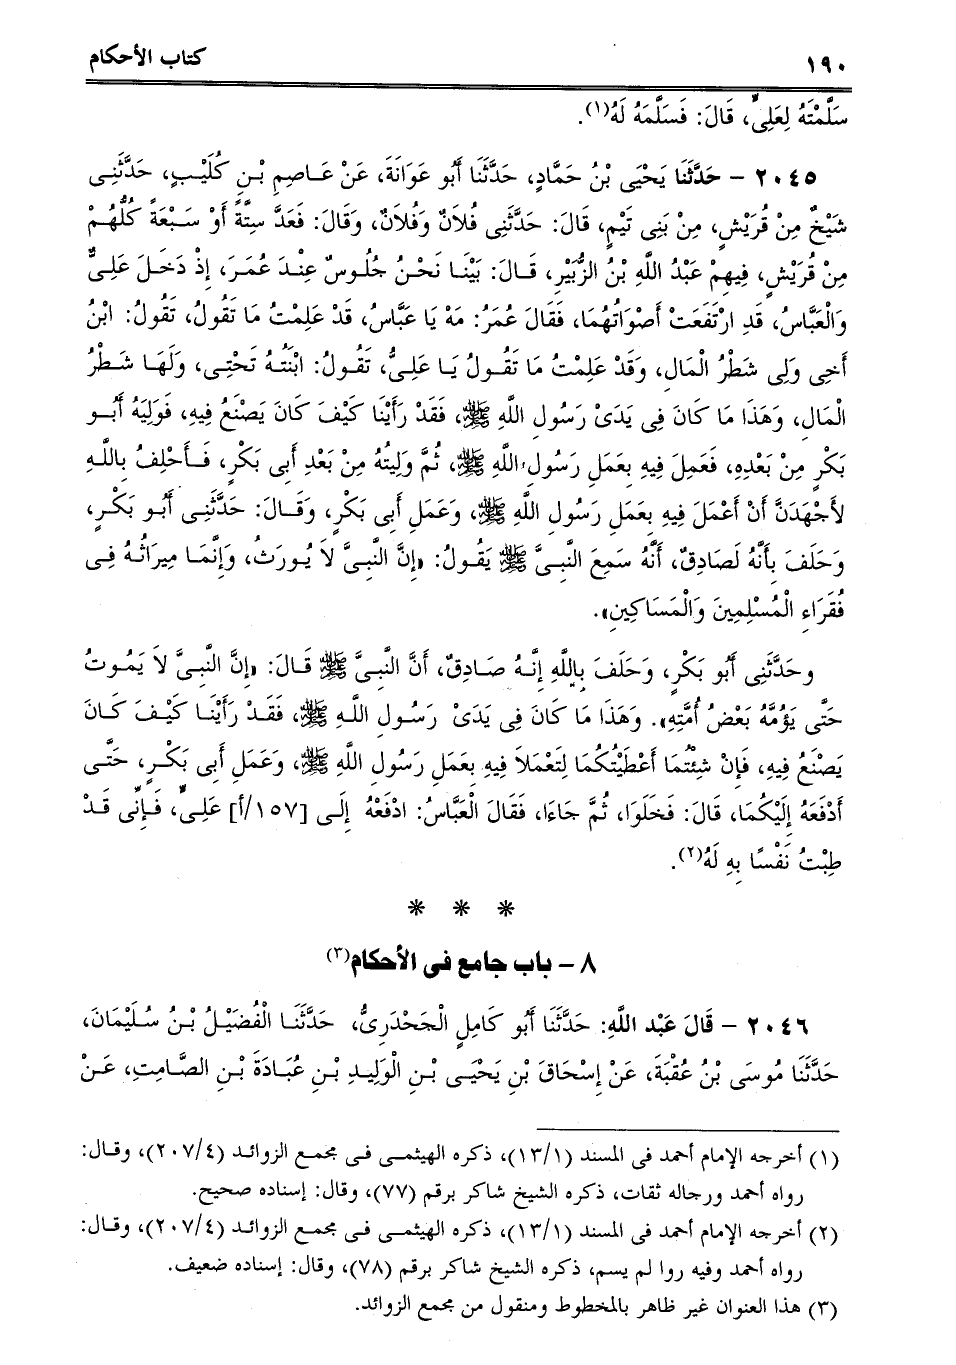 ١٩٠ كتاب الأحكام
سَلَّمْتَهُ لِعَلِىٍّ، قَالَ: فَسَلَّمَهُ لَهُ(١).
٢٠٤٥ - حَدَّثَنَا يَحْيَى بْنُ حَمَّادٍ، حَدَّثَنَا أَبُو عَوَانَةَ، عَنْ عَاصِمِ بْنِ كُلَيْبٍ، حَدَّثَنِى
شَيْخٌ مِنْ قُرَيْشٍ، مِنْ بَنِى تَيْمٍ، قَالَ: حَدَّثَنِى فُلاَنٌ وَفُلاَنٌ، وَقَالَ: فَعَدَّ سِتَّةً أَوْ سَبْعَةً كُلُّهُمْ
مِنْ قُرَيْشٍ، فِيهِمْ عَبْدُ اللَّهِ بْنُ الزُّبَيْرِ، قَالَ: بَيْنَا نَحْنُ جُلُوسٌ عِنْدَ عُمَرَ، إِذْ دَخَلَ عَلِىٌّ
وَالْعَبَّاسُ، قَدِ ارْتَفَعَتْ أَصْوَاتُهُمَا، فَقَالَ عُمَرُ: مَهْ يَا عَبَّاسُ، قَدْ عَلِمْتُ مَا تَقُولُ، تَقُولُ: ابْنُ
أَخِى وَلِى شَطْرُ الْمَالِ، وَقَدْ عَلِمْتُ مَا تَقُولُ يَا عَلِىُّ، تَقُولُ: ابْنَتُهُ تَحْتِى، وَلَهَا شَطْرُ
الْمَالِ، وَهَذَا مَا كَانَ فِى يَدَىْ رَسُولِ اللَّهِ ﷺ، فَقَدْ رَأَيْنَا كَيْفَ كَانَ يَصْنَعُ فِيهِ، فَوَلِيَهُ أَبُو
بَكْرٍ مِنْ بَعْدِهِ، فَعَمِلَ فِيهِ بِعَمَلِ رَسُولِ اللَّهِ ﷺ، ثُمَّ وَلِيتُهُ مِنْ بَعْدِ أَبِى بَكْرٍ، فَأَحْلِفُ بِاللَّهِ
لأَجْهَدَنَّ أَنْ أَعْمَلَ فِيهِ بِعَمَلِ رَسُولِ اللَّهِ ﷺ، وَعَمَلِ أَبِى بَكْرٍ، وَقَالَ: حَدَّثَنِى أَبُو بَكْرٍ،
وَحَلَفَ بِأَنَّهُ لَصَادِقٌ، أَنَّهُ سَمِعَ النَّبِىَّ ﷺ يَقُولُ: «إِنَّ النَّبِىَّ لاَ يُورَثُ، وَإِنَّمَا مِيرَاثُهُ فِى
فُقَرَاءِ الْمُسْلِمِينَ وَالْمَسَاكِينِ».
وحَدَّثَنِى أَبُو بَكْرٍ، وَحَلَفَ بِاللَّهِ إِنَّهُ صَادِقٌ، أَنَّ النَّبِىَّ ﷺ قَالَ: «إِنَّ النَّبِىَّ لاَ يَمُوتُ
حَتَّى يَؤُمَّهُ بَعْضُ أُمَّتِهِ». وَهَذَا مَا كَانَ فِى يَدَىْ رَسُولِ اللَّهِ ﷺ، فَقَدْ رَأَيْنَا كَيْفَ كَانَ
يَصْنَعُ فِيهِ، فَإِنْ شِئْتُمَا أَعْطَيْتُكُمَا لِتَعْمَلاَ فِيهِ بِعَمَلِ رَسُولِ اللَّهِ ﷺ، وَعَمَلِ أَبِى بَكْرٍ، حَتَّى
أَدْفَعَهُ إِلَيْكُمَا، قَالَ: فَخَلَوَا، ثُمَّ جَاءَا، فَقَالَ الْعَبَّاسُ: ادْفَعْهُ إِلَى [١٥٧/أ] عَلِىٍّ، فَإِنِّى قَدْ
طِبْتُ نَفْسًا بِهِ لَهُ(٢).
* * *
٨ - باب جامع فى الأحكام(٣)
٢٠٤٦ - قَالَ عَبْد اللَّهِ: حَدَّثَنَا أَبُو كَامِلٍ الْجَحْدَرِىُّ، حَدَّثَنَا الْفُضَيْلُ بْنُ سُلَيْمَانَ،
حَدَّثَنَا مُوسَى بْنُ عُقْبَةَ، عَنْ إِسْحَاقَ بْنِ يَحْيَى بْنِ الْوَلِيدِ بْنِ عُبَادَةَ بْنِ الصَّامِتِ، عَنْ
(١) أخرجه الإمام أحمد فى المسند (١٣/١)، ذكره الهيثمى فى مجمع الزوائد (٢٠٧/٤)، وقال:
رواه أحمد ورجاله ثقات، ذكره الشيخ شاكر برقم (٧٧)، وقال: إسناده صحيح.
(٢) أخرجه الإمام أحمد فى المسند (١٣/١)، ذكره الهيثمى فى مجمع الزوائد (٢٠٧/٤)، وقال:
رواه أحمد وفيه روا لم يسم، ذكره الشيخ شاكر برقم (٧٨)، وقال: إسناده ضعيف.
(٣) هذا العنوان غير ظاهر بالمخطوط ومنقول من مجمع الزوائد.